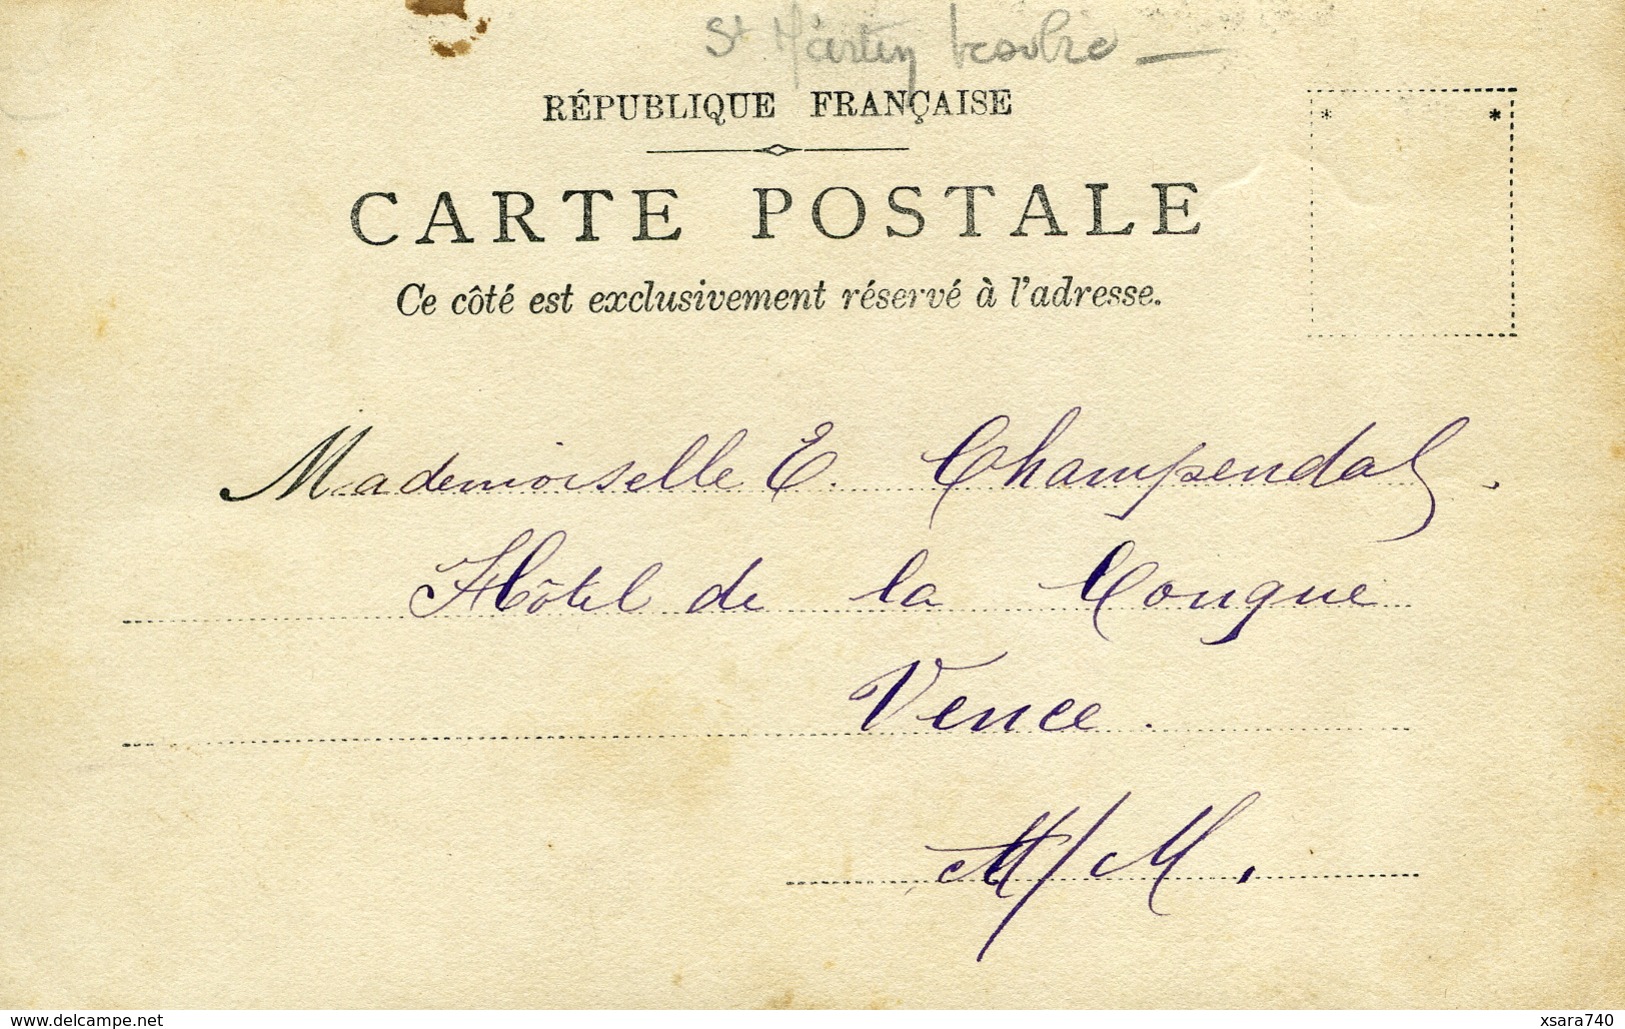 St Martin Vésubie —
RÉPUBLIQUE FRANÇAISE
CARTE POSTALE
Ce côté est exclusivement réservé à l'adresse.
* *
Mademoiselle E. Champendal.
Hôtel de la Conque
Vence.
A/M.
www.delcampe.net
xsara740